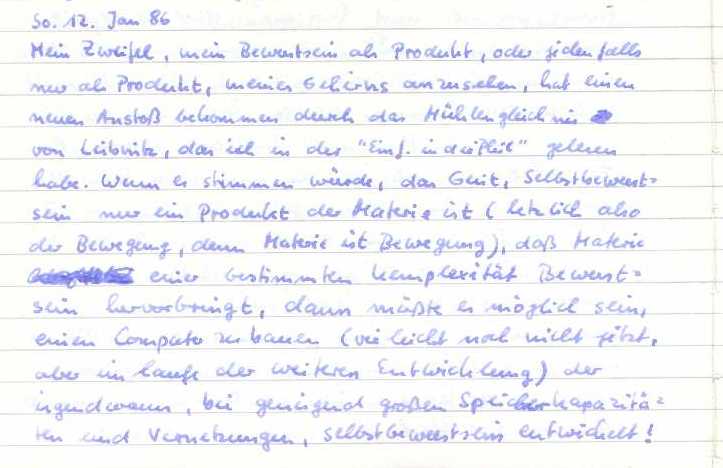 So. 12. Jan 86
Mein Zweifel, mein Bewusstsein als Produkt, oder jedenfalls
nur als Produkt, meines Gehirns anzusehen, hat einen
neuen Anstoß bekommen durch das Mühlengleichnis
von Leibnitz, das ich in der "Einf. in die Phil" gelesen
habe. Wenn es stimmen würde, das Geist, Selbstbewusst=
sein nur ein Produkt der Materie ist (letzlich also
der Bewegung, denn Materie ist Bewegung), daß Materie
einer bestimmten Komplexität Bewusst=
sein hervorbringt, dann müßte es möglich sein,
einen Computer zu bauen (vielleicht noch nicht jetzt,
aber im laufe der weiteren Entwicklung) der
irgendwann, bei genügend großen Speicherkapazitä=
ten und Vernetzungen, selbstbewusstsein entwickelt!